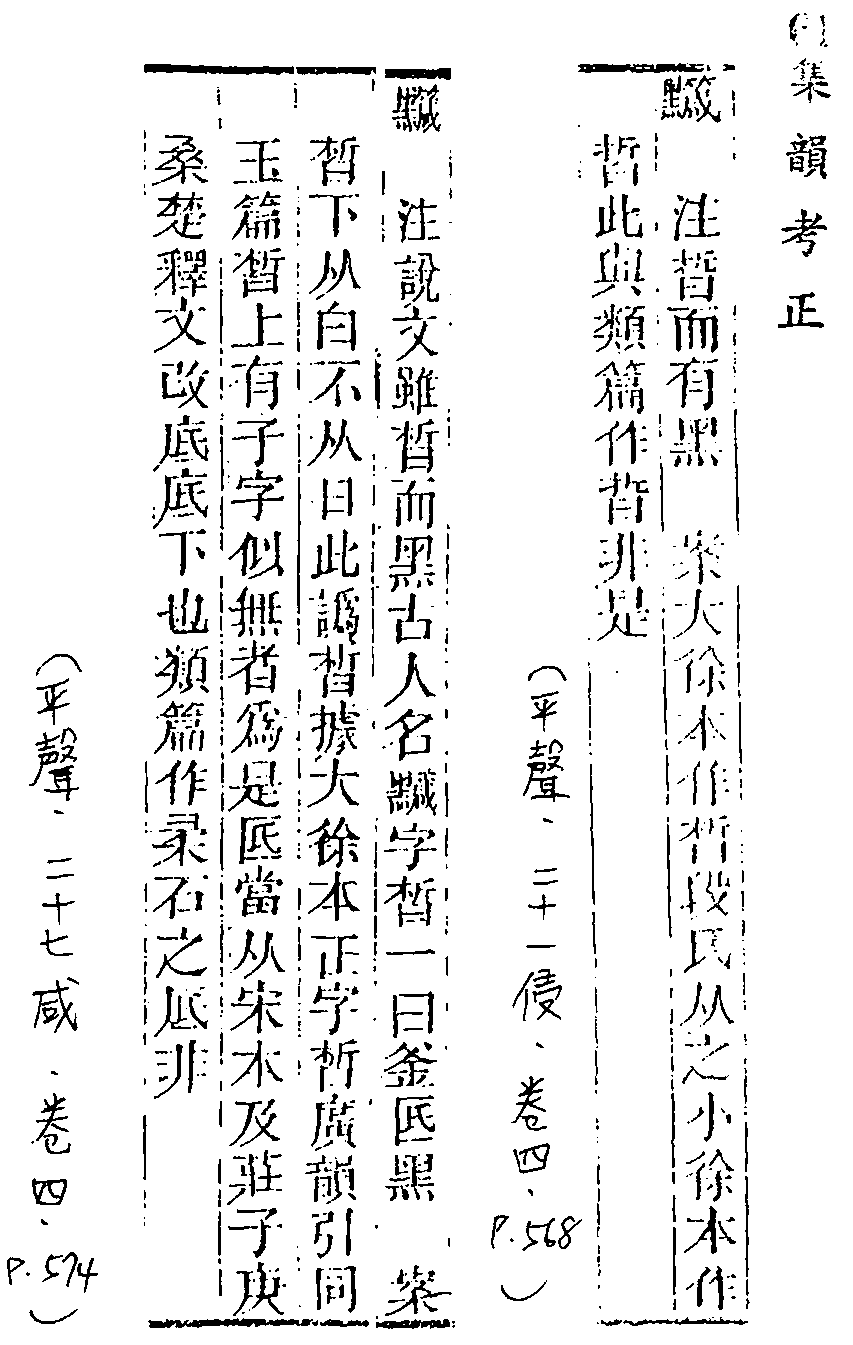 集韻考正
黬
注晳而有黑　案大徐本作晳段氏从之小徐本作
晳此與類篇作皆非是
（平聲、二十一侵、卷四、P.568）
黬
注說文雖晳而黑古人名黬字晳一曰釜匟黑　案
晳下从白不从日此譌晳據大徐本正字晳廣韻引同
玉篇晳上有子字似無者為是匟當从宋本及莊子庚
桑楚釋文改底底下也類篇作柔石之底非
（平聲、二十七咸、卷四、P.574）